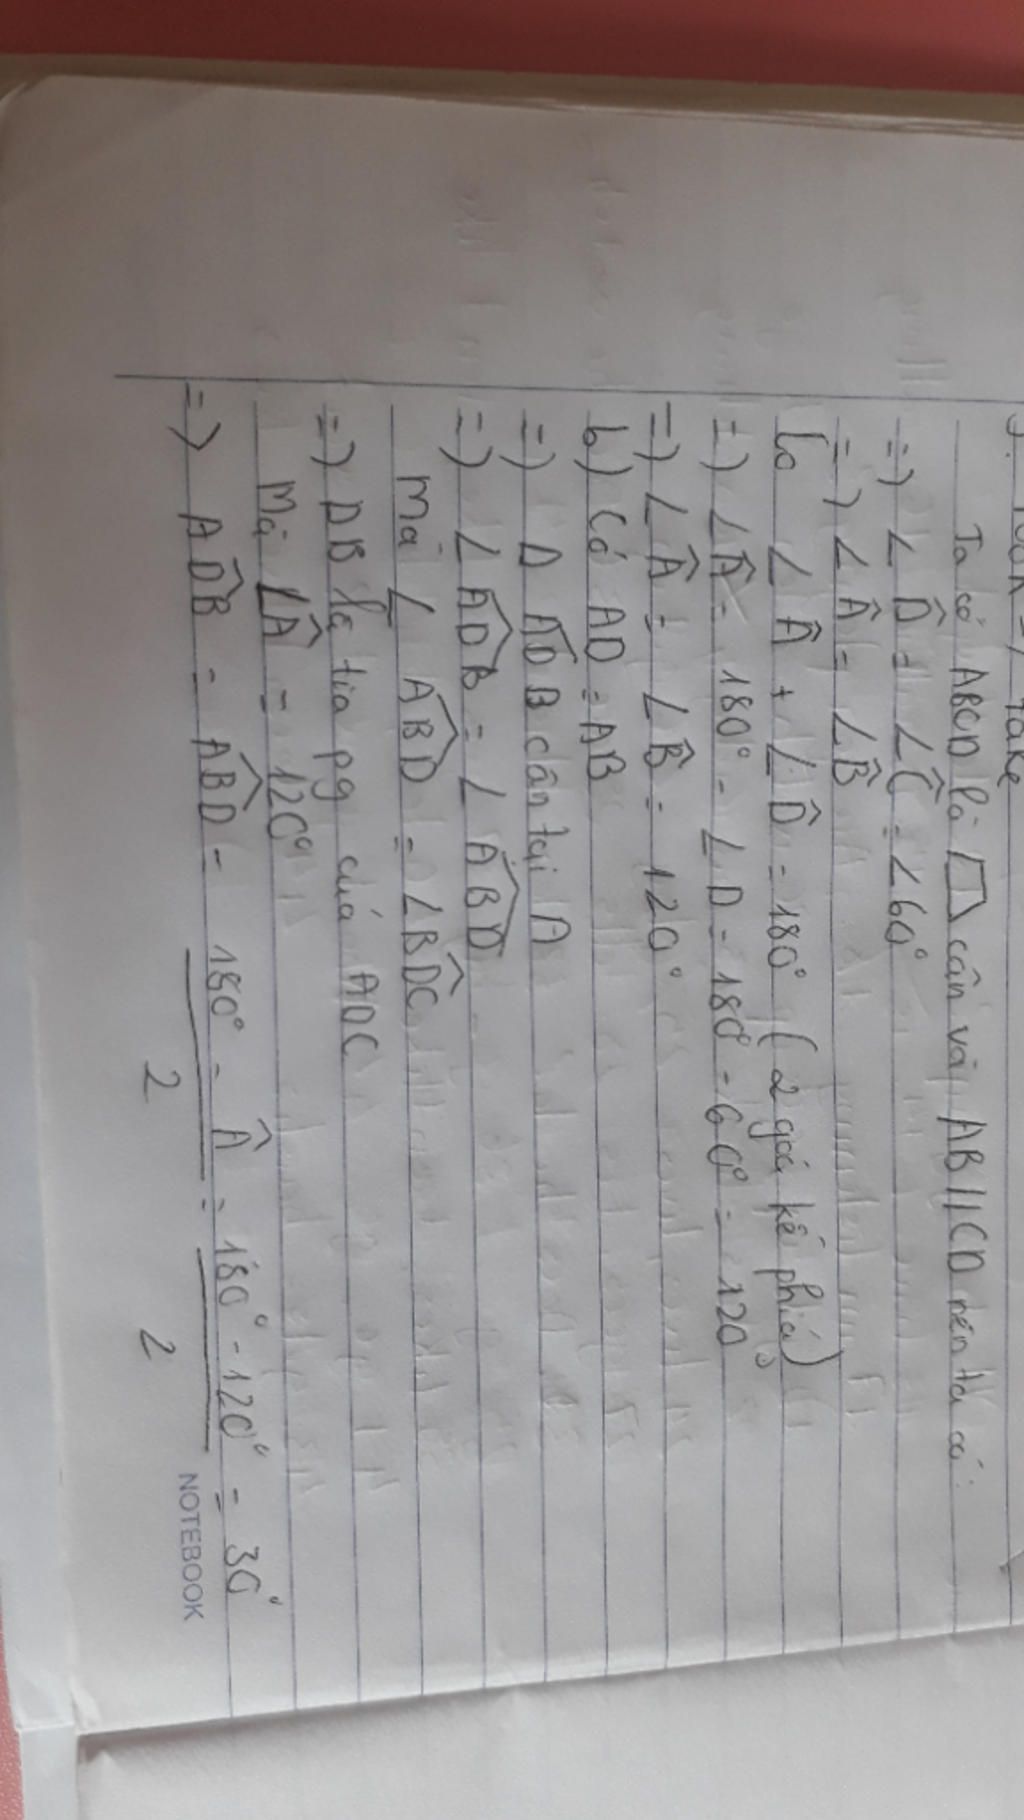 Ta có ABCD là cân và AB//CD nên ta có:
=) ∠D̂ = ∠Ĉ = ∠60°
=) ∠Â = ∠B̂
Có ∠Â + ∠D̂ = 180° (2 goá kề phiá)
=) ∠Â = 180° - ∠D = 180° - 60° = 120°
=) ∠Â = ∠B̂ = 120°
b) Có AD = AB
=) Δ ADB cân tại A
=) ∠ADB = ∠ABD
Mà ∠ABD = ∠BDC
=) DB là tia pg của ADC
Mà ∠Â = 120°
=) ADB = ABD = 180° - Â / 2 = 180° - 120° / 2 = 30°
NOTEBOOK